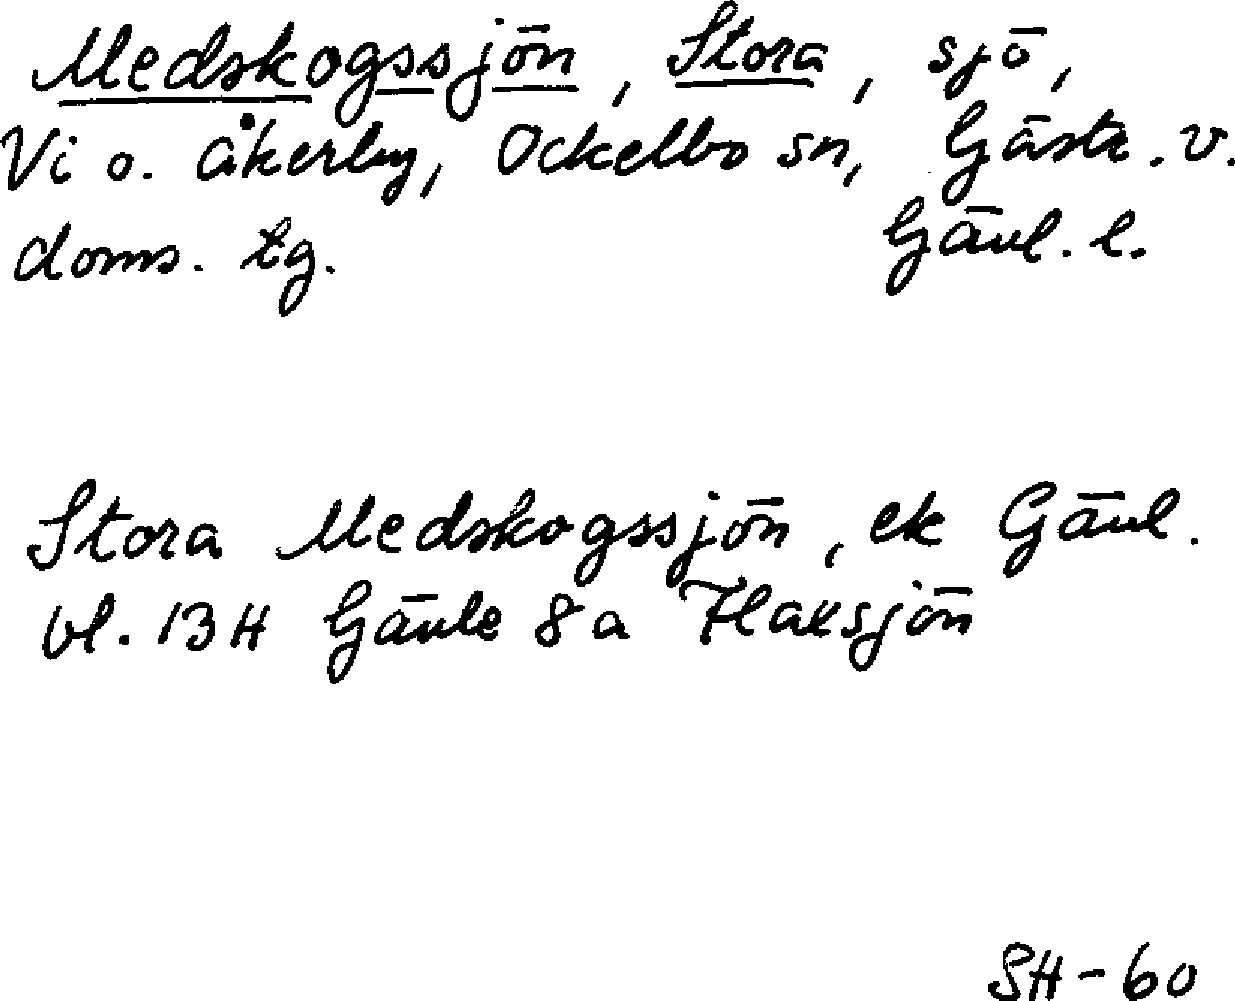 Medskogssjön, Stora, sjö,
Vi o. Åkerby, Ockelbo sn, Gästr. v.
doms. tg. Gävl. l.
Stora Medskogssjön, ek Gävl.
bl. 13H Gävle 8a Flaxsjön
SH-60